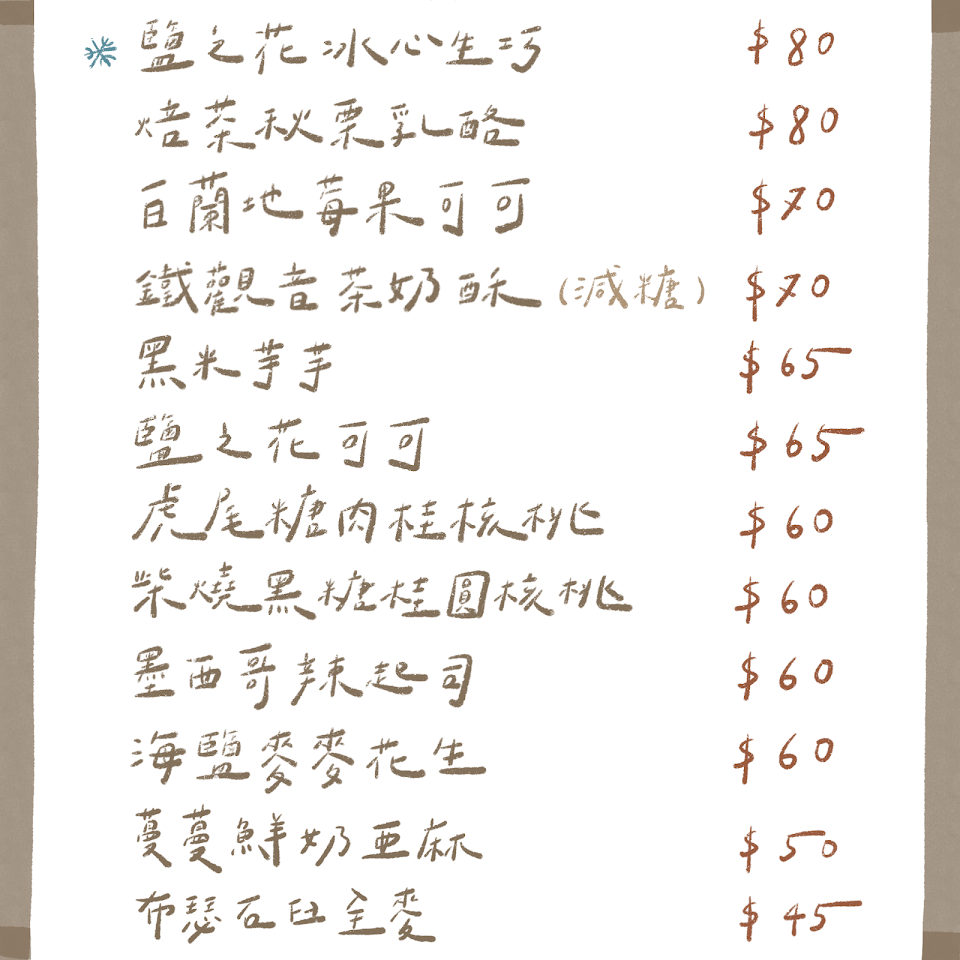 鹽之花冰心生巧 $80
焙茶秋栗乳酪 $80
百蘭地莓果可可 $70
鐵觀音茶奶酥(減糖) $70
黑米芋芋 $65
鹽之花可可 $65
虎尾糖肉桂核桃 $60
柴燒黑糖桂圓核桃 $60
墨西哥辣起司 $60
海鹽麥麥花生 $60
蔓蔓鮮奶亜麻 $50
布瑟石臼全麥 $45